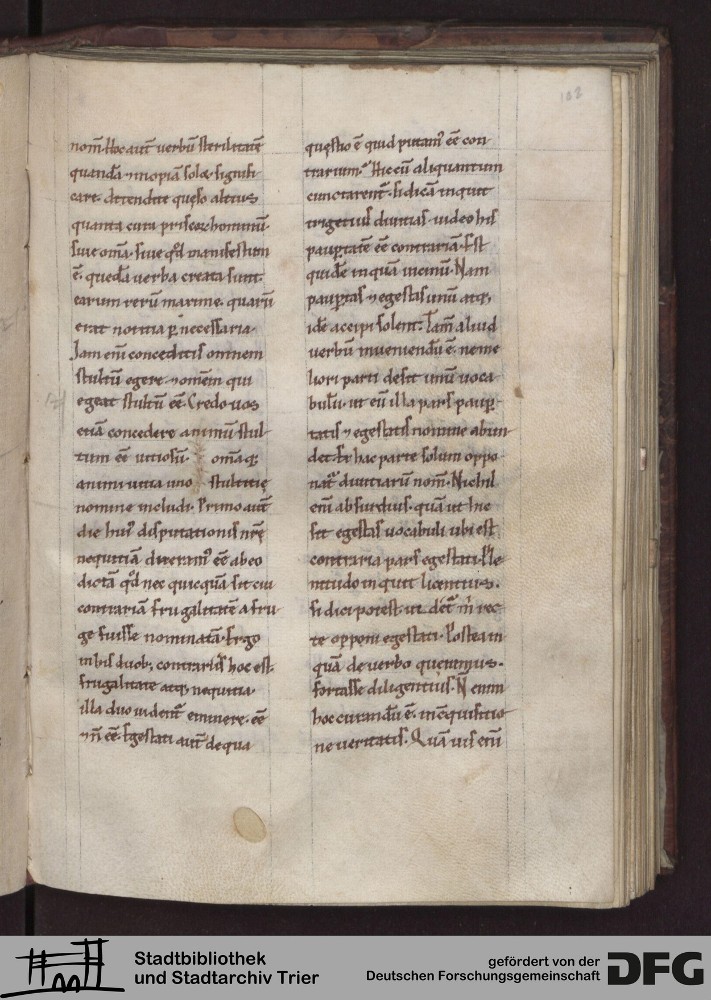 103
nom̄. Hoc aut̄ uerbū sterilitatē
quandā ⁊ inopiā solet signifi
care. Attendite queso altius
quanta cura priscoꝝ hominū
siue om̄a. siue qd̓ manifestum
ē. quedā uerba creata sunt.
earum rerū maxime. quarū
erat notitia ꝑ necessaria.
Iam eni conceditis omnem
stultū egere. ⁊ omnēm qui
egeat stultū eē. Credo uos
etiā concedere animū stul
tum eē uitiosū. omīaqꝫ
animi uitia uno stultitię
nomine includi. Primo aut̄
die hui᾽ disputationis nr̄ę
nequitiā dixeram᾽ eē ab eo
dictā qd̓ nec quicquā sit cui
contrariam frugalitatē a fru
ge fuisse nominatā. Ergo
in his duobꝫ contrariis hoc est
frugalitate atqꝫ nequitia.
illa duo uident᾽ eminere. eē
⁊ ñ eē. Egestati aut̄ de qua
questio ē quid putam᾽ eē con
trarium? Hic cū aliquantum
cunctarent᾽. si dicā inquit
trigetius diuitias uideo his
paup̱tatē eē contrariā. Est
quidē inquā uicinū. Nam
paup̱tas ⁊ egestas unū atqꝫ
idē accipi solent. Tam̄ aliud
uerbū inueniendū ē. ne me
liori parti desit unū uoca
bulū. ut cū illa pars paup̱
tatis ⁊ egestatis nomine abun
det. Ex hac parte solum oppo
nat᾽ diuitiarū nom̄. Nichil
enī absurdius. quā ut hic
sit egestas uocabuli ubi est
contraria pars egestati. Ple
nitudo inquit licentius.
si dici potest. ut det᾽ m̄ rec
te opponi egestati. Postea in
quā de uerbo queremus.
fortasse diligentius. Ñ enim
hoc curandū ē. in ĉquisitio
ne ueritatis. Quāuis enī
Stadtbibliothek
und Stadtarchiv Trier
gefördert von der
Deutschen Forschungsgemeinschaft
DFG